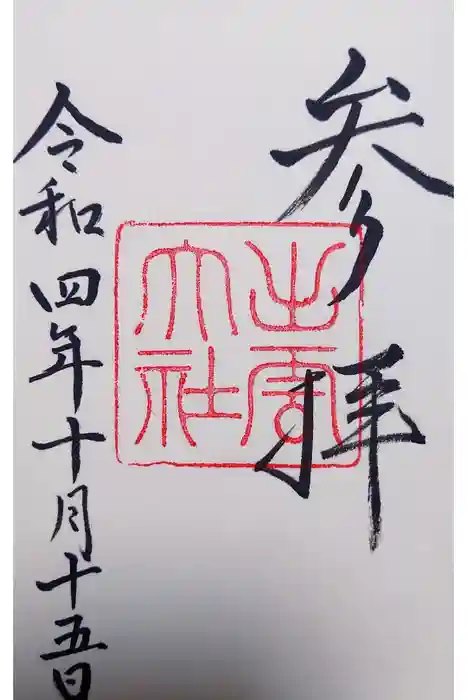 参拝
出雲
大社
令和四年十月十五日